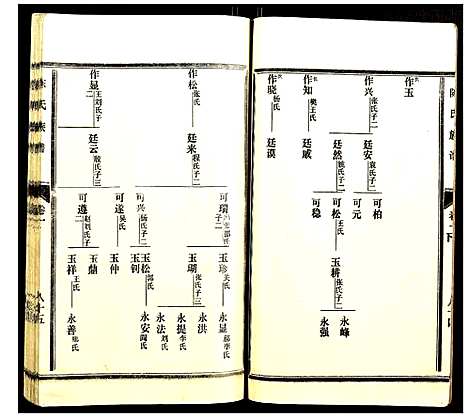 作玉
作兴 张氏子二
作知 樊王氏
作骁 杨氏
廷安 袁氏子二
廷然 魏氏子二
廷威
廷漠
可柏
可元
可松 王氏
可稳
玉耕 张氏子二
永峰
永强
卷一
作松 张氏
作显 王刘氏子二
廷来 程氏子二
廷云 殷氏子三
可瑞 子二
可兴 杨氏子二
可遂 吴氏
可遵 赵刘氏子二
玉珍 关氏
玉瑚 张氏子三
玉松 郭氏
玉钊
玉仲
玉鼎
玉祥 王氏
永显 郝李氏
永洪
永提 李氏
永法 刘氏
永安 阎氏
永善 郑氏
陈氏族谱
卷一
八十五